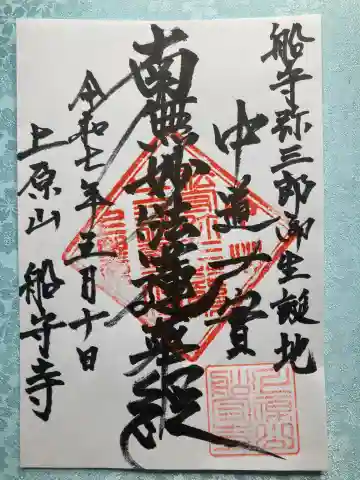 船守弥三郎御生誕地
中道一實
南無妙法蓮華経
令和七年五月十日
上原山 船守寺